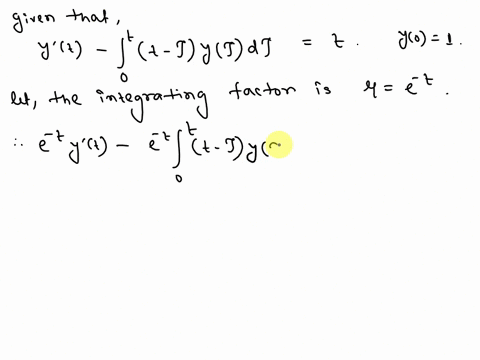 given that,
y'(t) - ∫₀ᵗ (t-T) y(T) dT = t. y(0) = 1.
let, the integrating factor is η = e⁻ᵗ.
∴ e⁻ᵗ y'(t) - e⁻ᵗ ∫₀ᵗ (t-T) y(